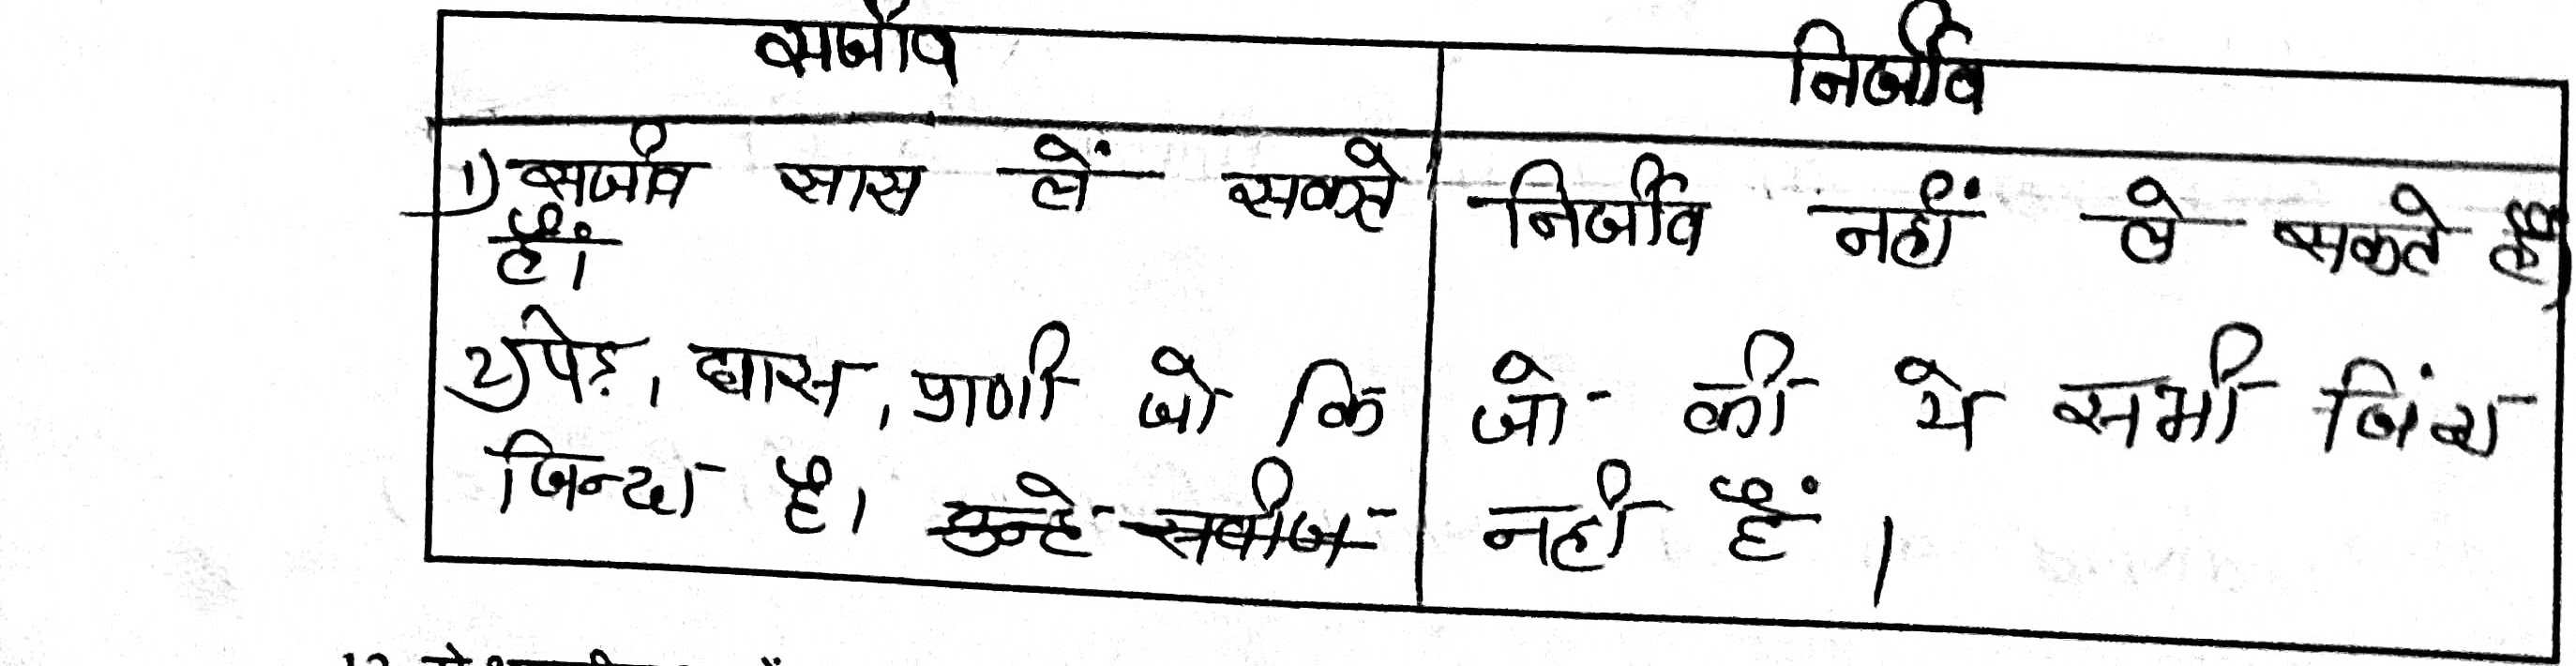 सजीव निर्जीव
1) सजीव सास लें सकते
हैं।
निर्जीव नहीं ले सकते हैं
2) पेड़, घास, प्राणी जो कि
जिन्दा है।
जो की ये सभी जिंदा
नहीं हैं।